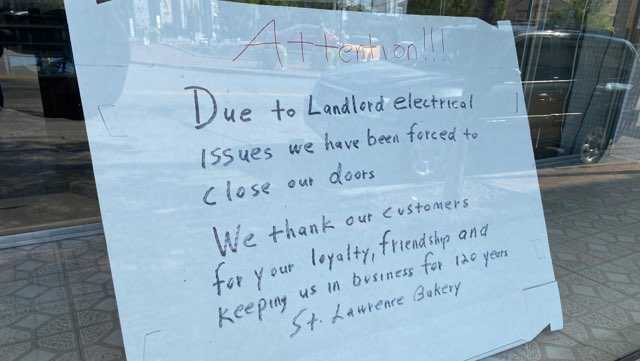 Attention!!!
Due to Landlord electrical
issues we have been forced to
close our doors
We thank our customers
for your loyalty, friendship and
keeping us in business for 120 years
St. Lawrence Bakery